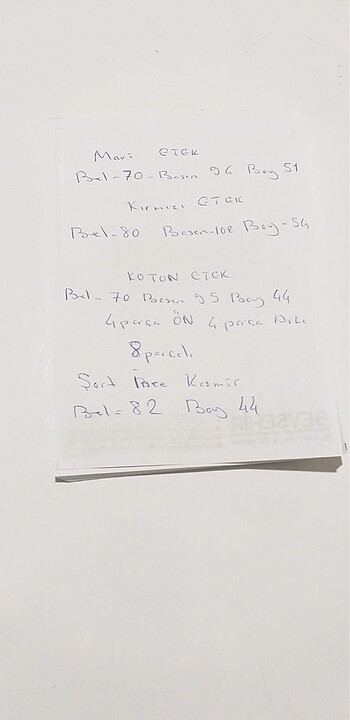 Mavi ETEK
Bel-70-Basen 96 Boy 51
Kırmızı ETEK
Bel-80 Basen-102 Boy-54
KOTON ETEK
Bel-70 Basen 95 Boy 44
4 parça ÖN 4 parça Arka
8 parçalı
Şort Kaşmir
Bel=82 Boy 44
BEYŞEHİR